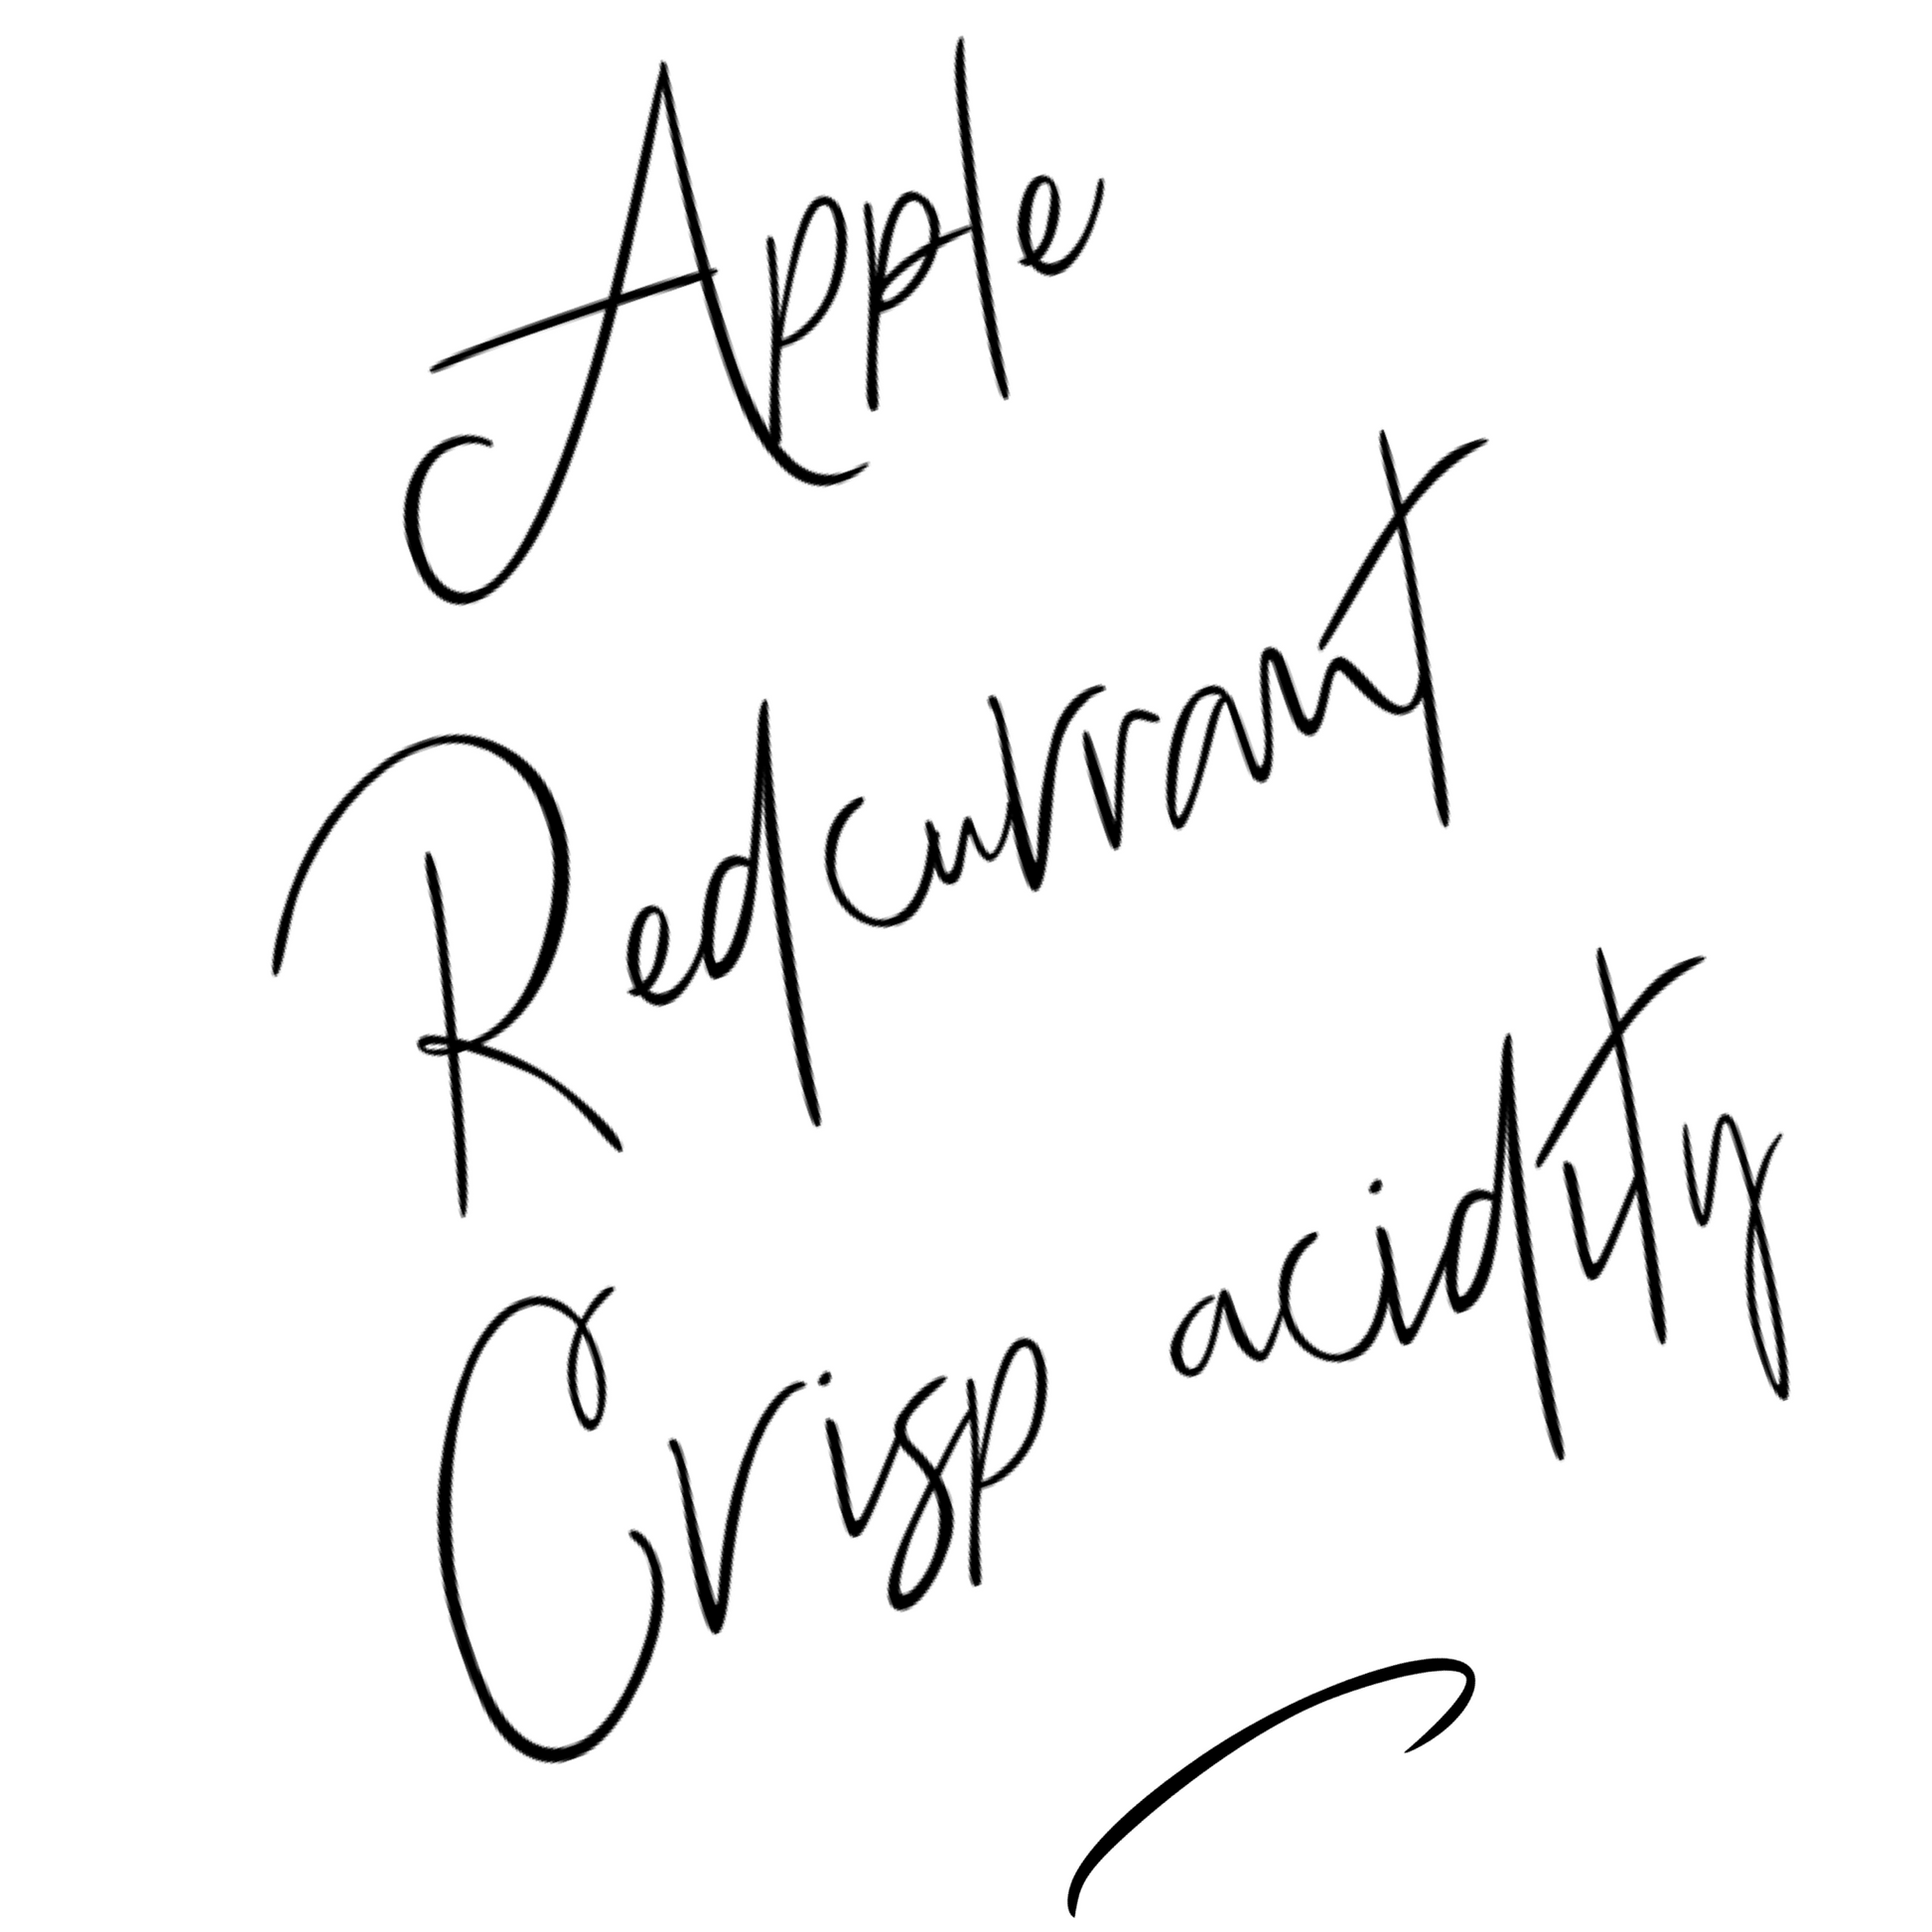 Apple
Redcurrant
Crisp acidity